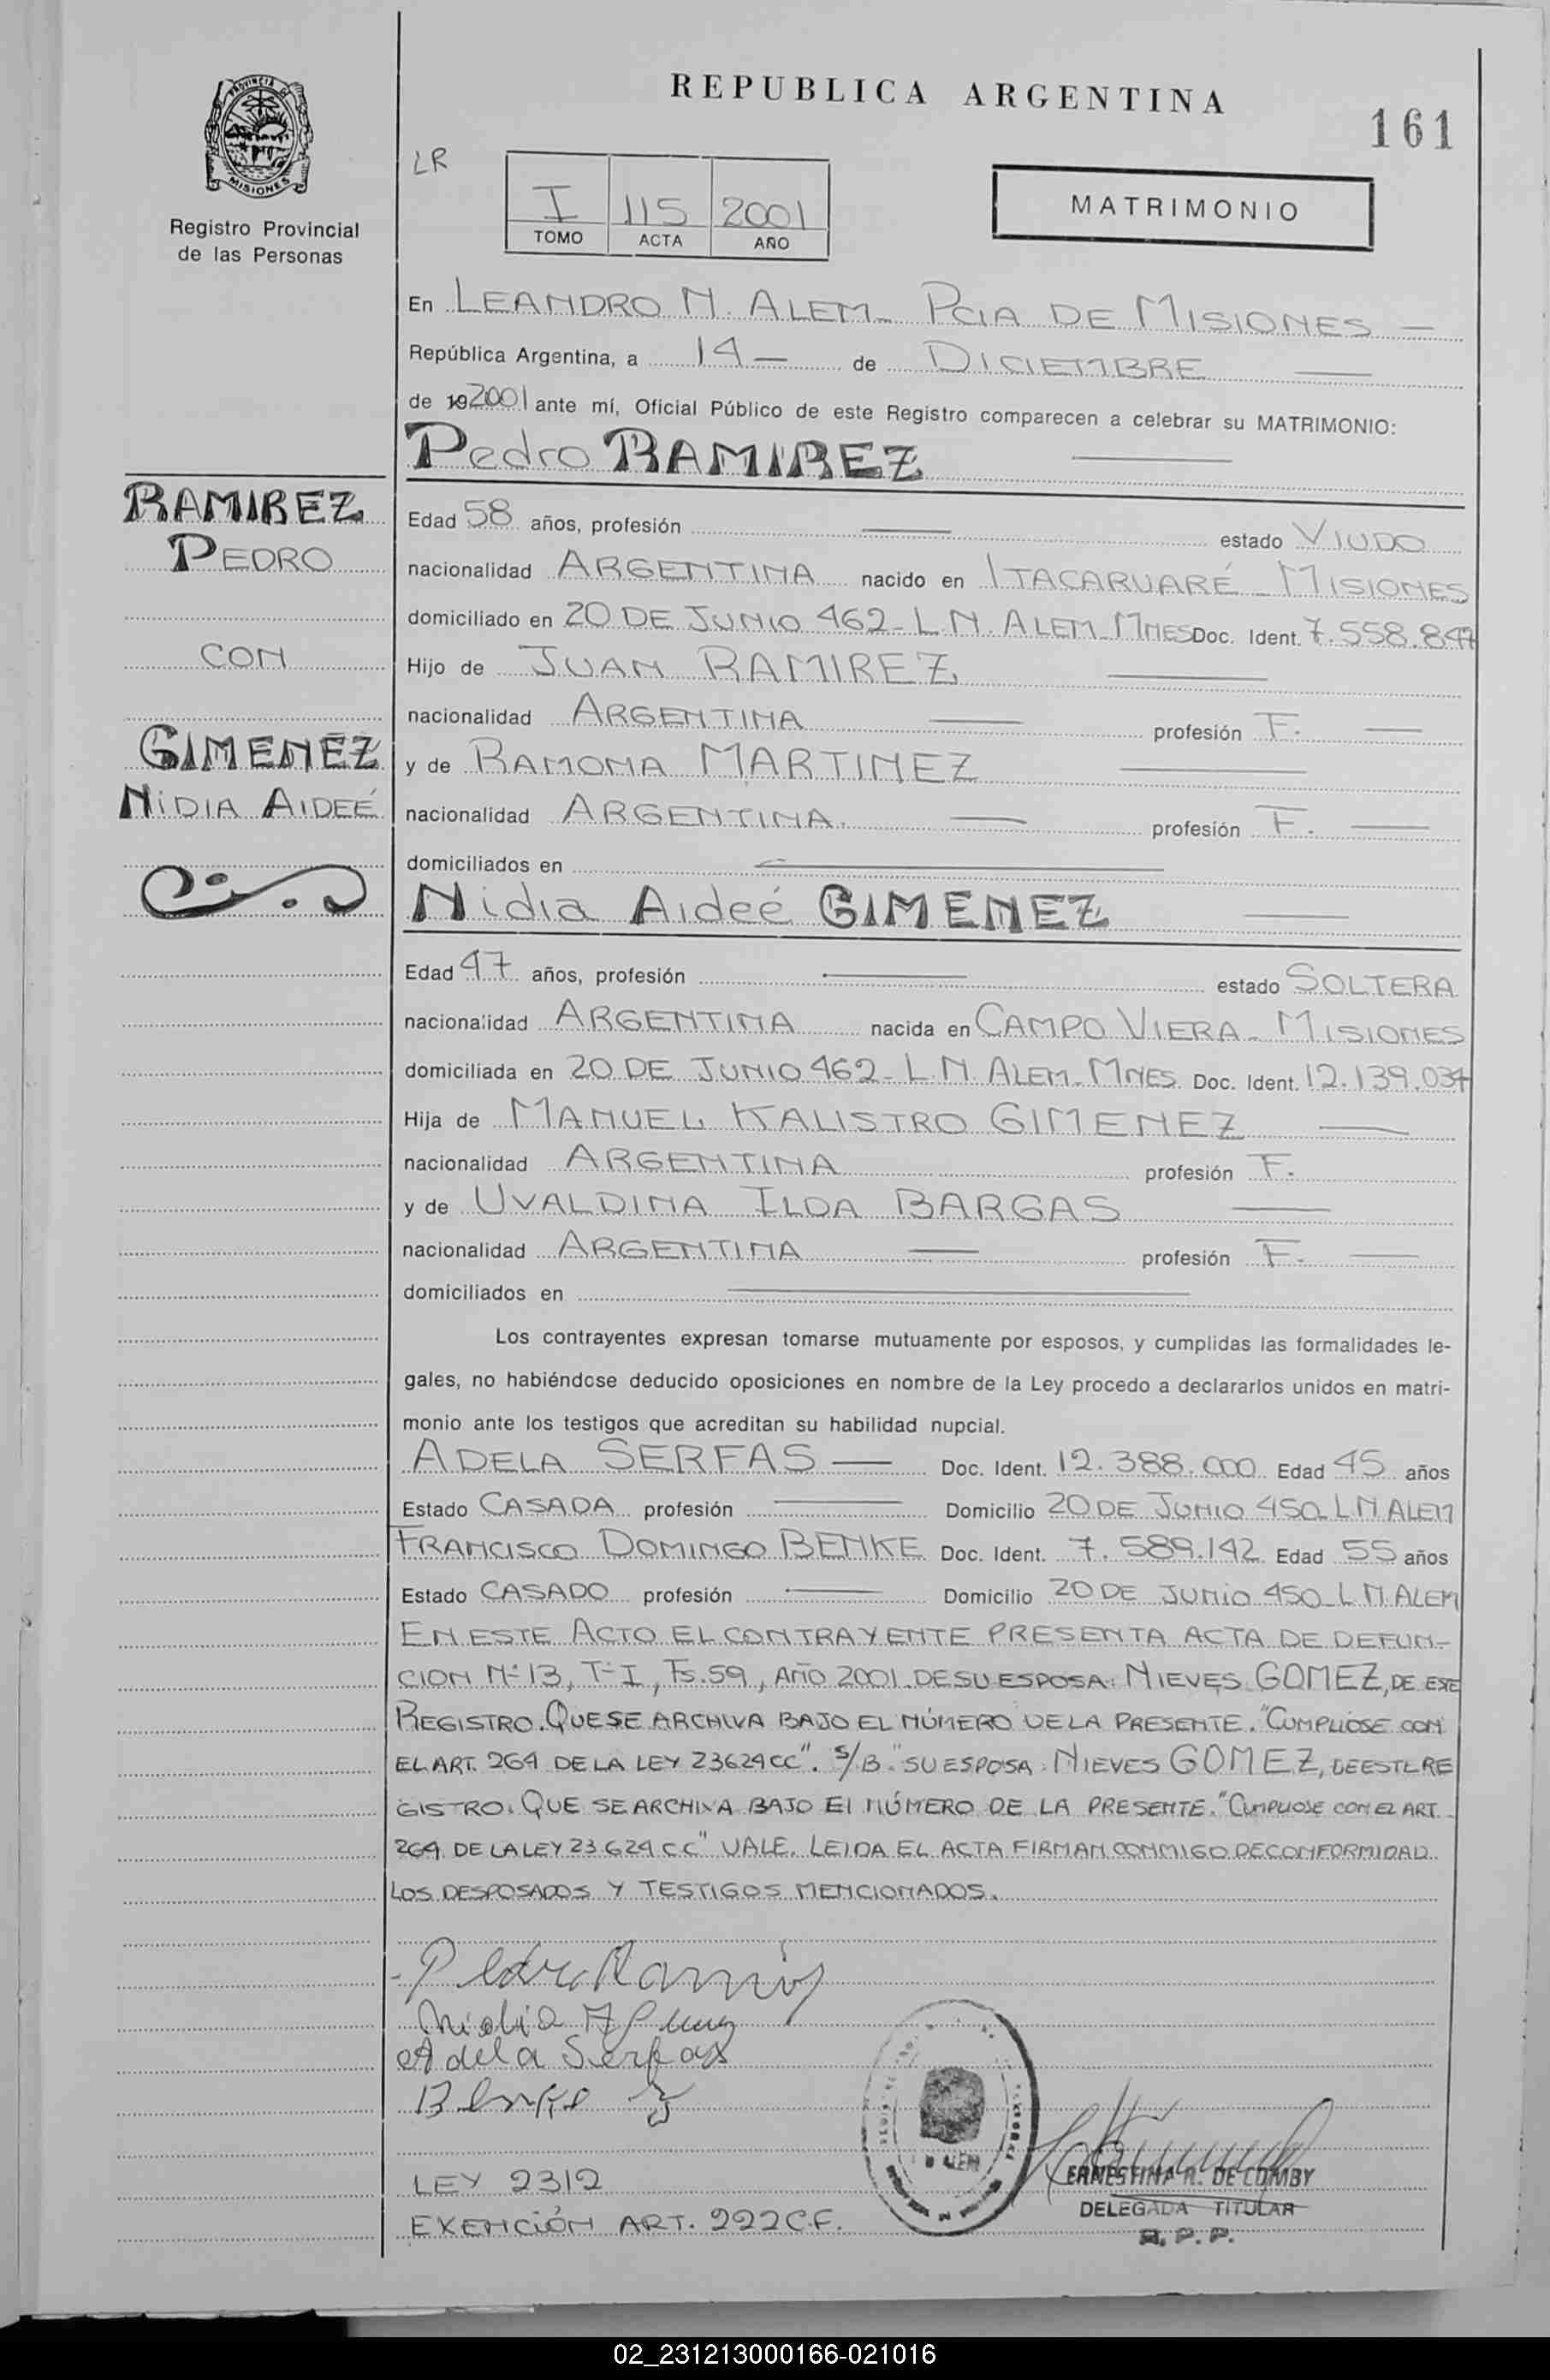 REPUBLICA ARGENTINA
161
PROVINCIA DE
MISIONES
Registro Provincial
de las Personas
LR
I 115 2001
TOMO ACTA AÑO
MATRIMONIO
En LEANDRO N. ALEM_ PCIA DE MISIONES —
República Argentina, a 14 — de DICIEMBRE —
de 192001 ante mí, Oficial Público de este Registro comparecen a celebrar su MATRIMONIO:
Pedro RAMIREZ —
RAMIREZ
PEDRO
CON
GIMENEZ
NIDIA AIDEÉ
Edad 58 años, profesión — estado VIUDO
nacionalidad ARGENTINA nacido en ITACARUARÉ _ MISIONES
domiciliado en 20 DE JUNIO 462_ L.N. ALEM_MNES Doc. Ident. 7.558.847
Hijo de JUAN RAMIREZ —
nacionalidad ARGENTINA — profesión F. —
y de RAMONA MARTINEZ —
nacionalidad ARGENTINA. — profesión F. —
domiciliados en —
Nidia Aideé GIMENEZ —
Edad 47 años, profesión — estado SOLTERA
nacionalidad ARGENTINA nacida en CAMPO VIERA_ MISIONES
domiciliada en 20 DE JUNIO 462_ L.N. ALEM_MNES. Doc. Ident. 12.139.034
Hija de MANUEL KALISTRO GIMENEZ —
nacionalidad ARGENTINA profesión F.
y de UVALDINA ILDA BARGAS —
nacionalidad ARGENTINA — profesión F. —
domiciliados en —
Los contrayentes expresan tomarse mutuamente por esposos, y cumplidas las formalidades le-
gales, no habiéndose deducido oposiciones en nombre de la Ley procedo a declararlos unidos en matri-
monio ante los testigos que acreditan su habilidad nupcial.
ADELA SERFAS — Doc. Ident. 12.388.000 Edad 45 años
Estado CASADA profesión — Domicilio 20 DE JUNIO 450_ L N ALEM
FRANCISCO DOMINGO BENKE Doc. Ident. 7.589.142 Edad 55 años
Estado CASADO profesión — Domicilio 20 DE JUNIO 450_ L N. ALEM
EN ESTE ACTO EL CONTRAYENTE PRESENTA ACTA DE DEFUN-
CION Nº 13, Tº I, Fs. 59, AÑO 2001. DE SU ESPOSA: NIEVES GOMEZ, DE ESTE
REGISTRO. QUE SE ARCHIVA BAJO EL NÚMERO DE LA PRESENTE. "CUMPLIOSE CON
EL ART. 264 DE LA LEY 23624 CC". S/B "SU ESPOSA: NIEVES GOMEZ, DE ESTE RE
GISTRO. QUE SE ARCHIVA BAJO El NÚMERO DE LA PRESENTE. "CUMPLIOSE CON EL ART.
264 DE LA LEY 23624 CC" VALE. LEIDA EL ACTA FIRMAN CONMIGO DE CONFORMIDAD
LOS DESPOSADOS Y TESTIGOS MENCIONADOS.
Pedro Ramirez
Nidia A
Adela Serfas
Benke
LEY 2312
EXENCIÓN ART. 222 C.F.
ALEM
ERNESTINA R. DE LOMBY
DELEGADA TITULAR
R. P. P.
02_231213000166-021016